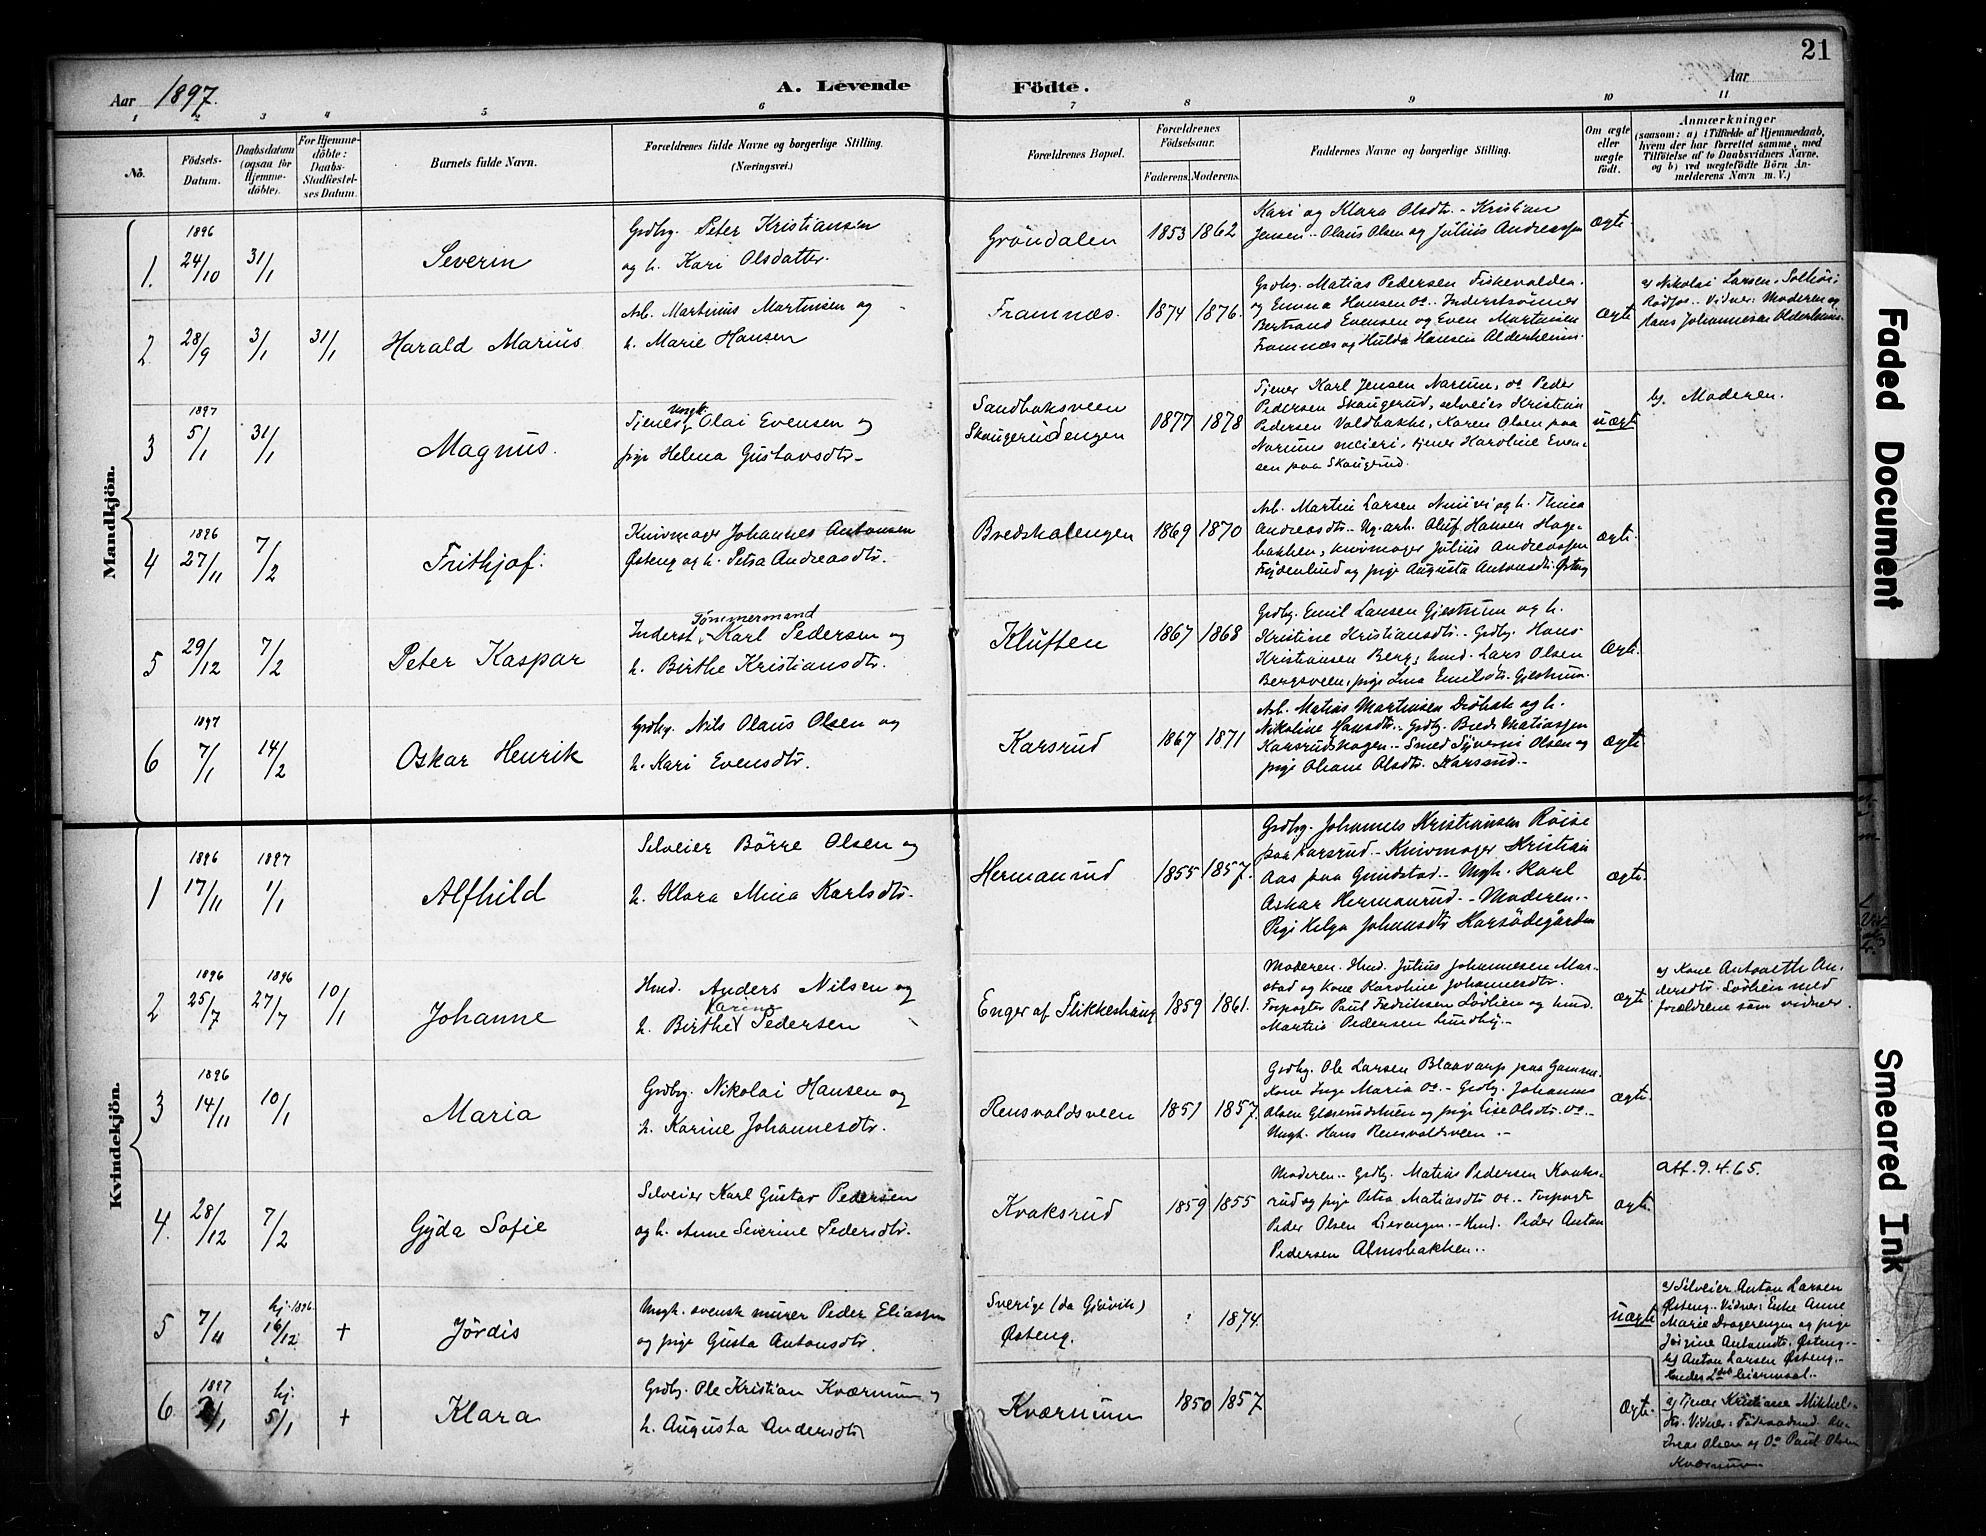 21
Aar 1897.
A. Levende Födte.
Aar
1 2 3 4 5 6 7 8 9 10 11
No.
Födsels-Datum.
Daabsdatum (ogsaa för Hjemme-döbte).
For Hjemme-döbte: Daabs-Stadfæstel-ses Datum.
Barnets fulde Navn.
Forældrenes fulde Navne og borgerlige Stilling.
(Næringsvei.)
Forældrenes Bopæl.
Forældrenes Födselsaar.
Faderens. Moderens.
Faddernes Navne og borgerlige Stilling.
Om ægte eller uægte födt.
Anmærkninger
(saasom: a) i Tilfælde af Hjemmedaab,
hvem der har forrettet samme, med
Tilföielse af to Daabsvidners Navne,
og b) ved uægtefödte Börn An-
melderens Navn m. V.)
Mandkjön.
1. 1896 24/10 31/1 Severin
Grdbg. Peter Kristiansen
og h. Kari Olsdatter.
Gröndalen 1853 1862
Kari og Klara Olsdtr. - Kristian
Jensen - Olaus Olsen og Julius Andreassen
ægte.
2 28/9 3/1 31/1 Harald Marius
Arb. Martinus Martinsen og
h. Marie Hansen
Framnæs. 1874 1876.
Grdbg. Matias Pedersen Fiskevolden
og Emma Hansen
Bertrand Evensen og Even Martinsen
Framnæs og Hulda Hansen Alderheim.
ægte
a) Nikolai Larsen,
Vidner: Moderen og
Hans Johannesen Alderheim.
3 1897 5/1 31/1 Magnus.
Tjener Ungk. Olai Evensen og
pige Helena Gustavsdtr.
Sandbaksveen
Skaugerudengen 1877 1878
Tjener Karl Jensen Narum, do Peder
Pedersen Skaugerud, selveier Kristian
Pedersen Voldbakke, Karen Olsen paa
Narums meieri, tjener Karoline Even-
sen paa Skaugrud.
uægte
b) Moderen.
4 1896 27/11 7/2 Frithjof.
Knivmager Johannes Antonsen
Østeng og h. Petra Andreasdtr.
Bredskalengen 1869 1870
Arb. Martin Larsen og h. Thina
Andreasdtr. - Ug. arb. Oluf Hansen Hage-
bakken, knivmager Julius Andreassen
Frydenlund og pige Augusta Antonsdtr. Østeng
ægte.
5 29/12 7/2 Peter Kaspar
Inderst, Tömmermand Karl Pedersen og
h. Birthe Kristiansdtr.
Kluften 1867 1868
Grdbg. Emil Larsen Gjestrum og h.
Kristine Kristiansdtr. - Grdbg. Hans
Kristiansen Berg, hmd. Lars Olsen
Bergsveen, pige Lina Emilsdtr. Gjestrum.
ægte.
6 1897 7/1 14/2 Oskar Henrik
Grdbg. Nils Olaus Olsen og
h. Kari Evensdtr.
Karsrud 1867 1871
Arb. Matias Martinsen og h.
Nikoline Hansdtr. - Grdbg. Bred. Matiassen
Karsrudshagen. - Smed Syverin Olsen og
pige Oliane Olsdtr. Karsrud. -
ægte
Kvindekjön.
1 1896 17/11 1897 1/1 Alfhild
Selveier Börre Olsen og
h. Klara Mina Karlsdtr.
Hermanrud 1855 1857.
Grdbg. Johannes Kristiansen Röise
paa Karsrud - Knivmager Kristian
Aas paa Grindstad. - Ungk. Karl
Oskar Hermanrud. - Moderen. -
Pige Helga Johansdtr
ægte.
2 1896 25/7 1896 27/7 10/1 Johanne
Hmd. Anders Nilsen og
h. Birthe Karine Pedersen
Enger af Slikkeshaug 1859 1861.
Moderen. Hmd. Julius Johannesen Mar-
stad og kone Karoline Johannesdtr.
Forpagter Paul Fredriksen Lövlien og hmd.
Martin Pedersen Lundby. -
ægte
a) Kone Antonette An-
dersdtr. Lövlien med
forældrene som vidner.
3 1896 14/11 10/1 Maria
Grdbg. Nikolai Hansen og
h. Karine Johannesdtr.
Rensvoldsveen 1851 1857.
Grdbg. Ole Larsen Blaavarp paa
Kone Inge Maria do. - Grdbg. Johannes
Olsen og pige Lise Olsdtr. do. -
Ungk. Hans Rensvoldsveen. -
ægte.
4. 28/12 7/2 Gyda Sofie
Selveier Karl Gustav Pedersen
og h. Anne Severine Pedersdtr.
Kvaksrud 1859 1855
Moderen. - Grdbg. Matias Pedersen Kvaks-
rud og pige Petra Matiasdtr do. - Forpagter
Peder Olsen Lievengen. - Hmd. Peder Anton
Pedersen Almsbakken. -
ægte.
att. 9.4.65.
5 7/11 hj. 1896 16/12 + Jördis
Ungk. svensk murer Peder Eliassen
og pige Gusta Antonsdtr.
Sverige (da Gjövik)
Østeng. : 1874.
uægte
a) Selveier Anton Larsen
Østeng. - Vidner: Enke Anne
Marie Dragerengen og pige
Jörgine Antonsdtr. Østeng. -
b) Anton Larsen Østeng. -
Endes leiermaal.
6 1897 2/1 hj. 5/1 + Klara
Grdbg. Ole Kristian Kværnum og
h. Augusta Andersdtr
Kværnum 1850 1857
Ægte.
a) Tjener Kristiane Mikkels-
dtr. Vidner: Föderaadmd. An-
dreas Olsen og do Paul Olsen
Kværnum
Faded Document
Smeared Ink